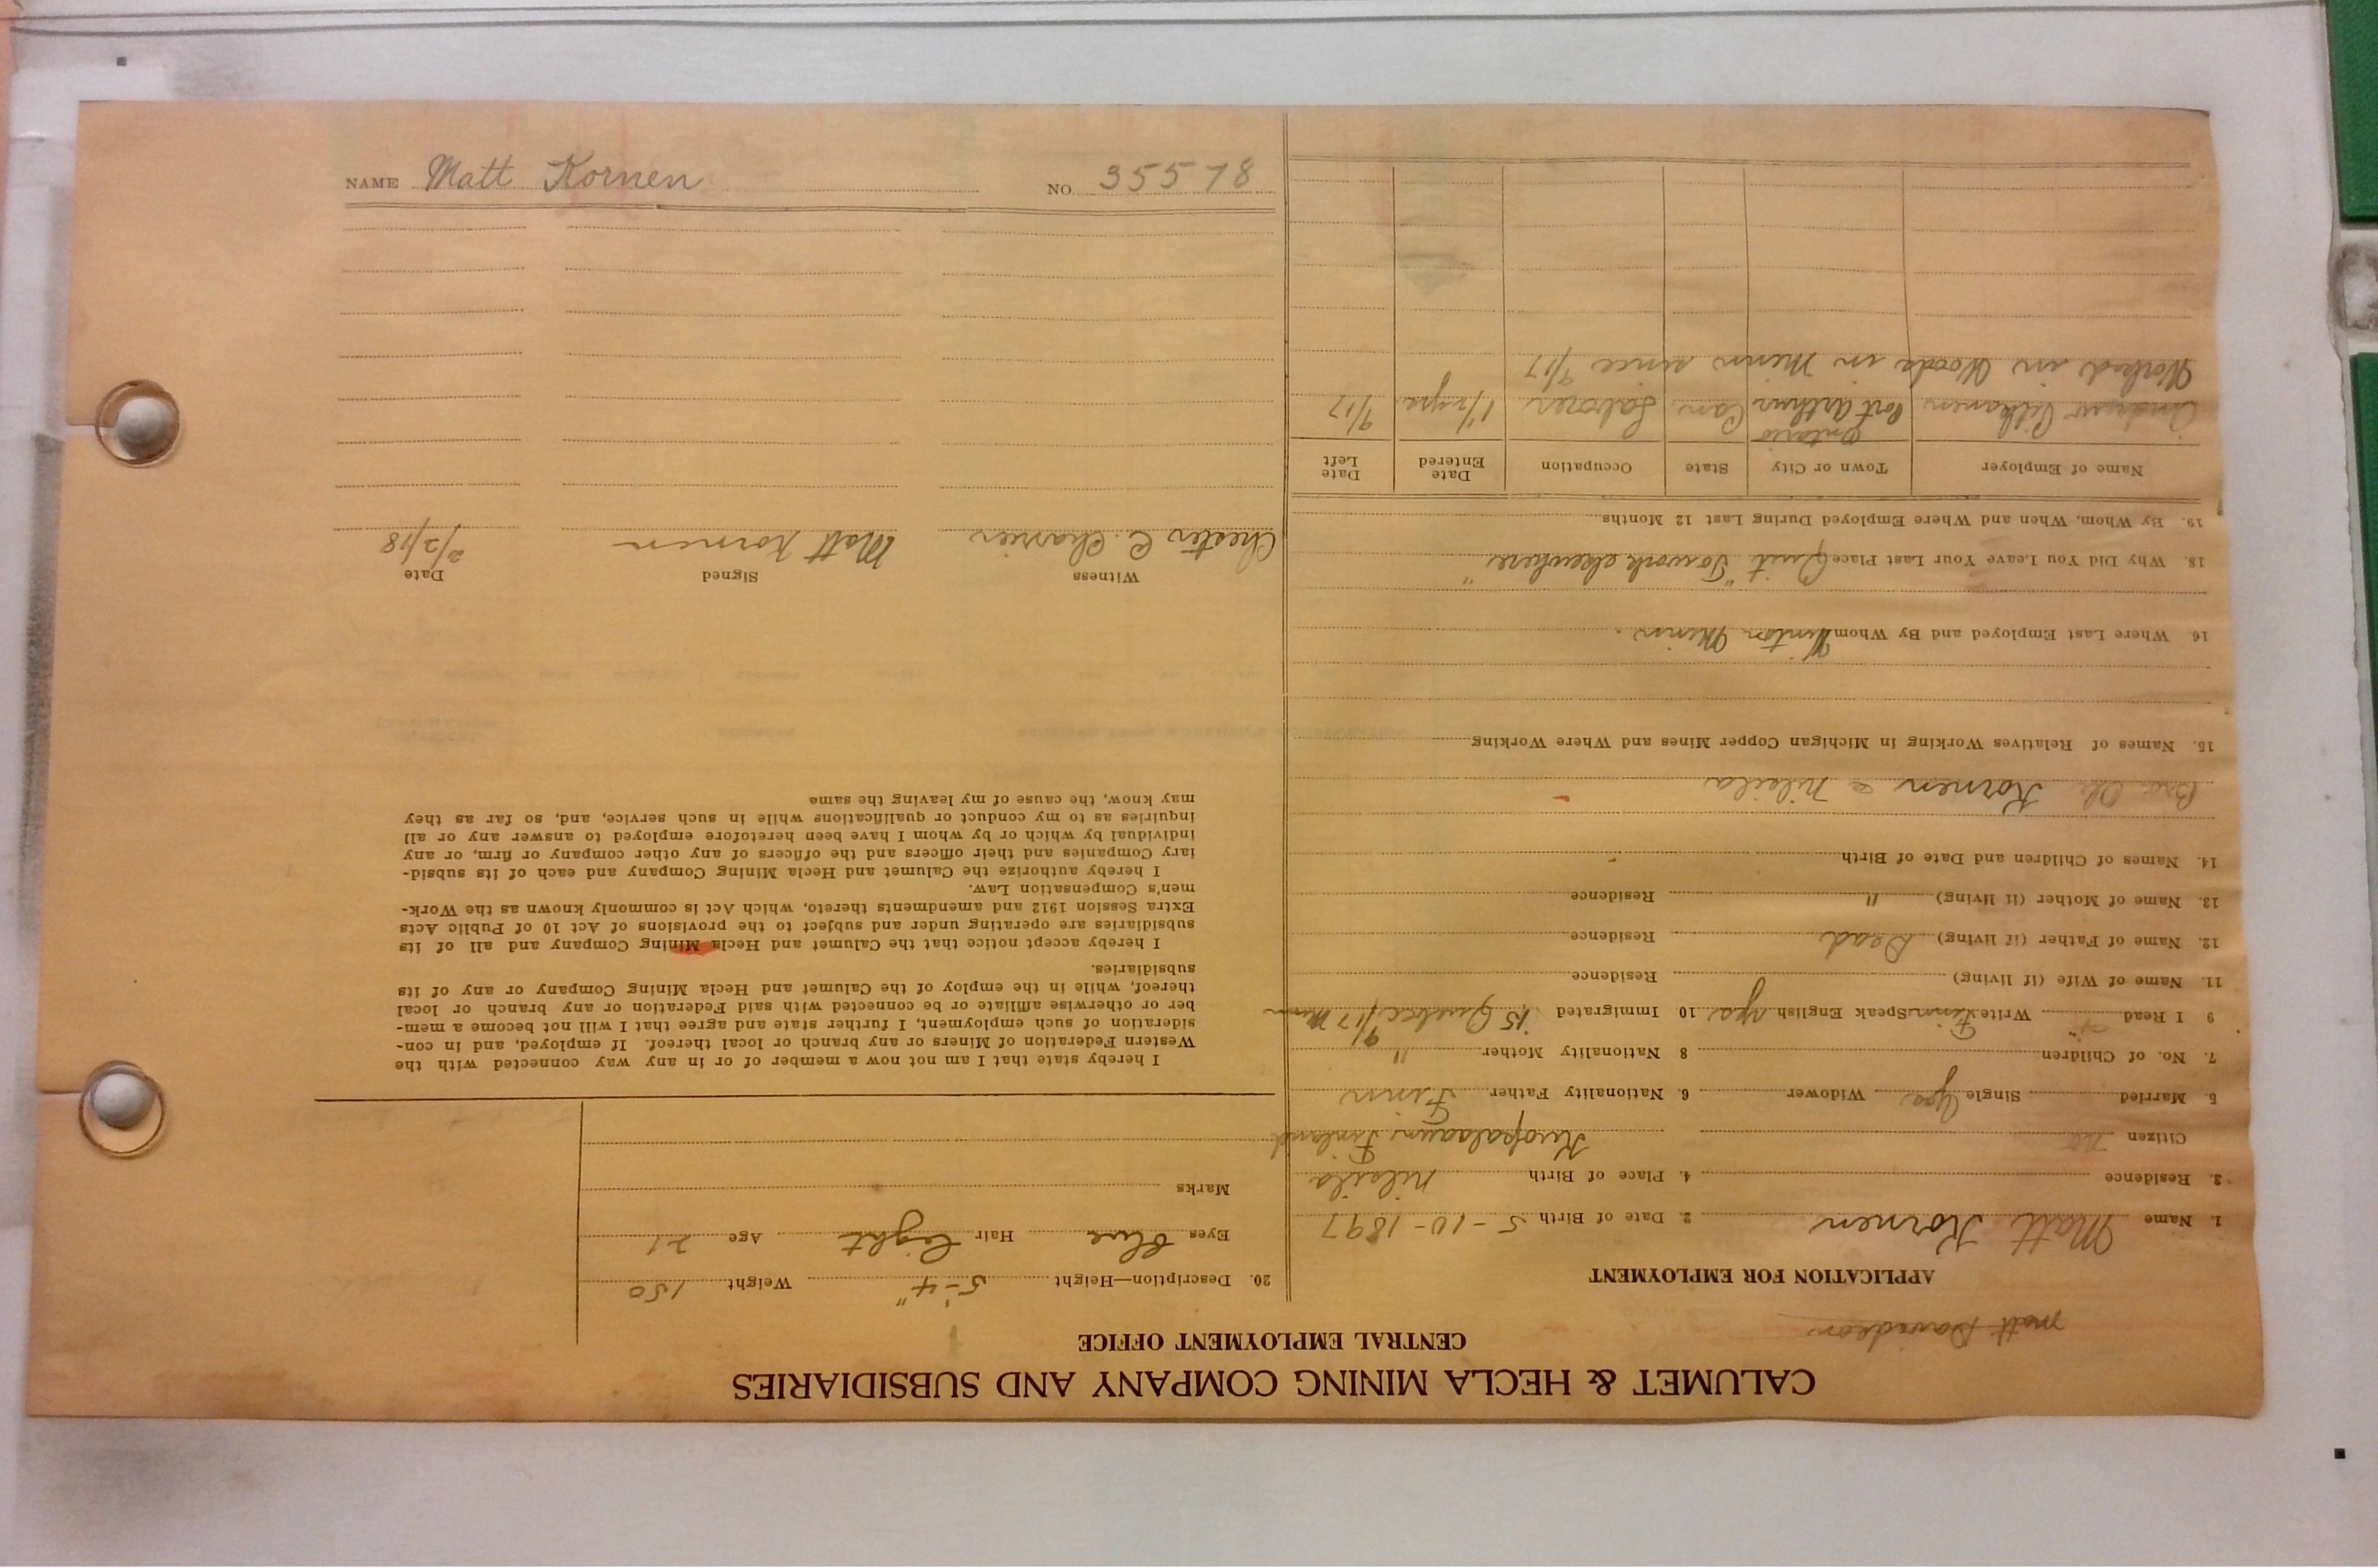 CALUMET & HECLA MINING COMPANY AND SUBSIDIARIES
CENTRAL EMPLOYMENT OFFICE
Matt Davidson
APPLICATION FOR EMPLOYMENT
1. Name Matt Kornen 2. Date of Birth 5-10-1897
3. Residence 4. Place of Birth Nilsila
Citizen no Kuopolaani Finland
5. Married Single Yes Widower 6. Nationality Father Finn
7. No. of Children 8 Nationality Mother "
9 I Read Write Finn Speak English Yes 10 Immigrated 15 Quebec 9/17 Minn
11. Name of Wife (if living) Residence
12. Name of Father (if living) Dead Residence
13. Name of Mother (if living) " Residence
14. Names of Children and Date of Birth
Bro. Kornen Nilsila
15. Names of Relatives Working in Michigan Copper Mines and Where Working
16 Where Last Employed and By Whom Winton Minn.
18. Why Did You Leave Your Last Place Quit "To work elsewhere"
19. By Whom, When and Where Employed During Last 12 Months
Name of Employer Town or City State Occupation Date Entered Date Left
Ontario
Andrew Port Arthur Can. Laborer 1 1/2 yrs. 9/17
Worked in Woods in Minn since 9/17
20. Description—Height 5'-4" Weight 150
Eyes Blue Hair Light Age 21
Marks
I hereby state that I am not now a member of or in any way connected with the
Western Federation of Miners or any branch or local thereof. If employed, and in con-
sideration of such employment, I further state and agree that I will not become a mem-
ber or otherwise affiliate or be connected with said Federation or any branch or local
thereof, while in the employ of the Calumet and Hecla Mining Company or any of its
subsidiaries.
I hereby accept notice that the Calumet and Hecla Mining Company and all of its
subsidiaries are operating under and subject to the provisions of Act 10 of Public Acts
Extra Session 1912 and amendments thereto, which Act is commonly known as the Work-
men's Compensation Law.
I hereby authorize the Calumet and Hecla Mining Company and each of its subsid-
iary Companies and their officers and the officers of any other company or firm, or any
individual by which or by whom I have been heretofore employed to answer any or all
inquiries as to my conduct or qualifications while in such service, and, so far as they
may know, the cause of my leaving the same
Witness Signed Date
Chester C. Charrier Matt Kornen 2/2/18
NAME Matt Kornen NO. 35578